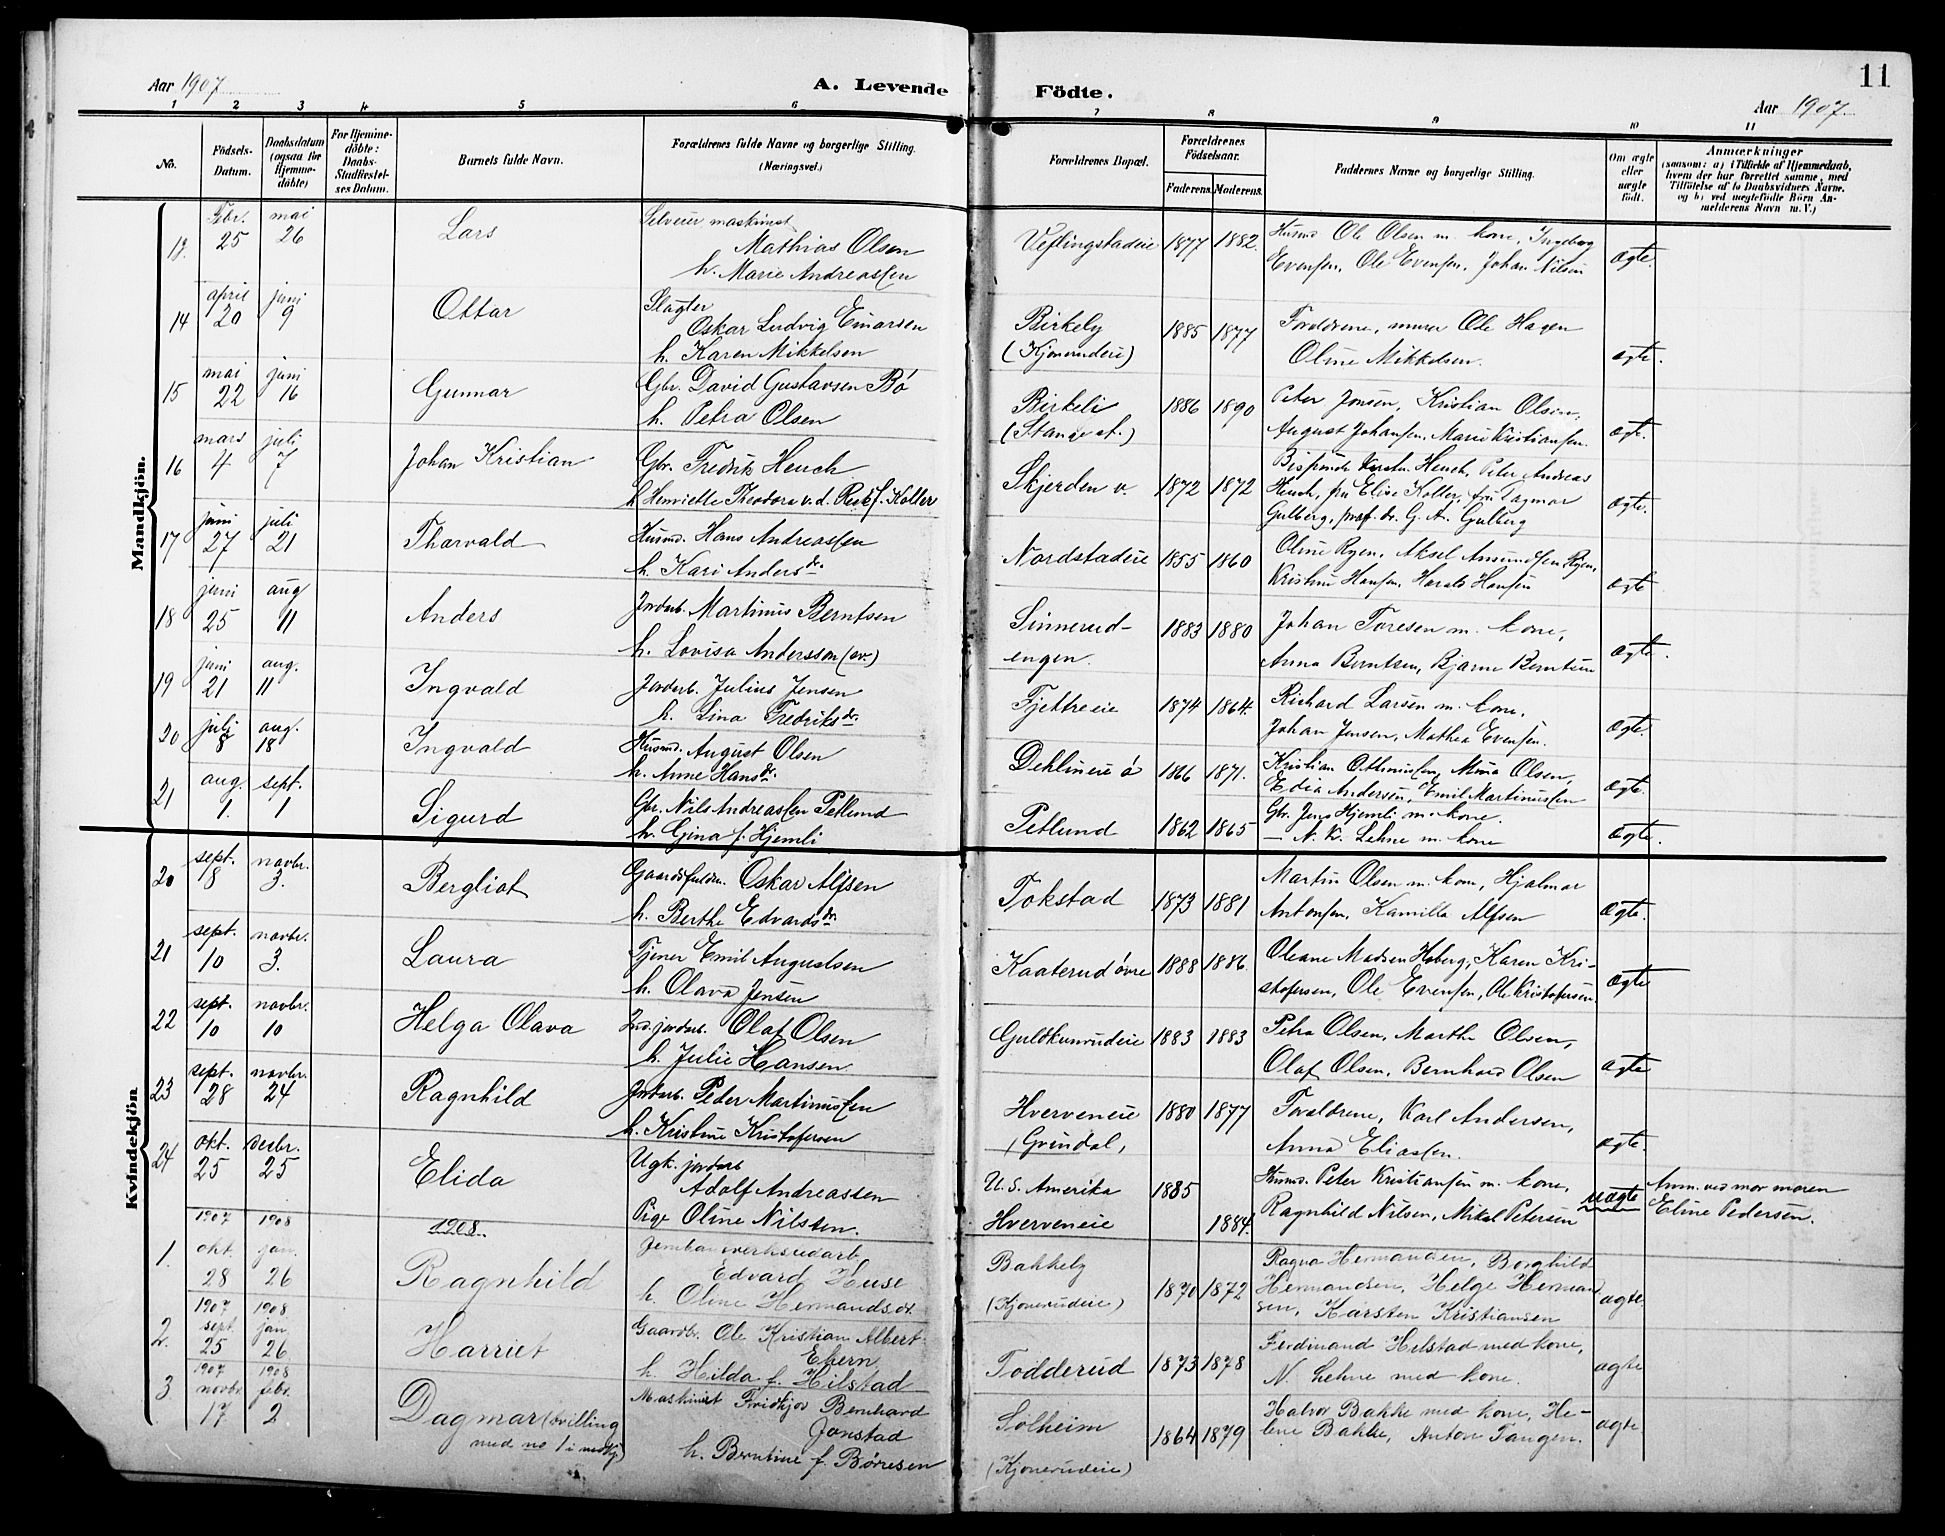 Aar 1907
A. Levende
Födte.
Aar 1907.
11
1 2 3 4 5 6 7 8 9 10 11
No.
Födsels-
Datum.
Daabsdatum
(ogsaa for
Hjemme-
døbte)
For Hjemme-
döbte:
Daabs-
Stadfæstel-
ses Datum.
Barnets fulde Navn.
Forældrenes fulde Navne og borgerlige Stilling.
(Næringsvei.)
Forældrenes Bopæl.
Forældrenes
Födselsaar.
Faderens. Moderens.
Faddernes Navne og borgerlige Stilling.
Om ægte
eller
uægte
födt.
Anmærkninger
(saasom: a) i Tilfælde af Hjemmedaab,
hvem der har forrettet samme, med
Tilföielse af to Daabsvidners Navne.
og b) ved uægtefödte Börn An-
melderens Navn m. V.)
Mandkjön.
13. Febr. 25 mai 26 Lars Selveier maskinist
Mathias Olsen
h. Marie Andreassen
Veflingstadeie 1877 1882. Husmd Ole Olsen m. kone, Ingeborg
Evensen, Ole Evensen, Johan Nilsen ægte.
14 april 20 juni 9 Ottar Slagter
Oskar Ludvig Einarsen
h. Karen Mikkelsen
Birkely
(Kjonerudeie) 1885 1877 Forældrene, murer Ole Hagen
Oline Mikkelsen. ægte.
15 mai 22 juni 16 Gunnar Gbr. David Gustavsen Bö
h. Petra Olsen
Birkeli
(Stange st.) 1886 1890 Peter Jonsen, Kristian Olsen,
August Johansen, Marie Kristiansen. ægte.
16 mars 4 juli 7 Johan Kristian Gbr. Fredrik Heuch
h Henriette Theodora v. d. f. Koller
Skjerden v. 1872 1872 Heuch, Peter Andreas
Heuch, fru Elise Koller, fru Dagmar
Gulberg, prof. dr. G. A. Gulberg ægte.
17 juni 27 juli 21 Thorvald Husmd. Hans Andreassen
h. Kari Andersdr.
Nordstadeie 1855 1860 Oline Ryen, Aksel Amundsen Ryen,
Kristine Hansen, Harald Hansen ægte
18 juni 25 aug 11 Anders Jordarb. Martinus Berntsen
h. Lovisa Andersson (sv.)
Sinnerud-
engen. 1883 1880 Johan Toresen m. kone,
Anna Berntsen, Bjarne Berntsen ægte.
19 juni 21 aug. 11 Ingvald Jordarb. Julius Jensen
h. Lina Fredriksdr.
Fjettreeie 1874 1864. Richard Larsen m. kone,
Johan Jensen, Mathea Evensen. ægte.
20 juli 8 aug. 18 Ingvald Husmd. August Olsen
h. Anne Hansdr.
Dehlineie ö 1866 1871. Kristian Ottinussen, Mina Olsen,
Edia Andersen, Emil Martinussen ægte.
21 aug. 1. sept. 1 Sigurd Gbr. Nils Andreassen Petlund
h. Gina f. Hjemli
Petlund 1862 1865 Gbr. Jens Hjemli m. kone.
— N. K. Lehne m. kone ægte.
Kvindekjön
20 sept. 18 novbr. 3. Bergliot Oskar Alfsen
h. Berthe Edvardsdr.
Tokstad 1873 1881 Martin Olsen m. kone, Hjalmar
Antonsen, Kamilla Alfsen ægte.
21 sept. 10 novbr. 3. Laura Tjener Emil Augustsen
h. Olava Jensen
Kaaterud övre 1888 1886. Oleane Madsen Hoberg, Karen Kri-
stofersen, Ole Evensen, Ole Kristofersen ægte
22 sept. 10 novbr. 10 Helga Olava Ind. jordarb. Olaf Olsen
h. Julie Hansen
Guldkunrudeie 1883 1883 Petra Olsen, Marthe Olsen,
Olaf Olsen, Bernhard Olsen ægte
23 sept. 28 novbr. 24 Ragnhild Jordarb. Peder Martinussen
h. Kristine Kristofersen
Hverveneie
(Gröndal, 1880 1877 Forældrene, Karl Andersen,
Anna Eliassen. ægte.
24 okt. 25 decbr. 25 Elida Ugk. jordarb
Adolf Andreassen
Pige Oline Nilssen.
U. S. Amerika 1885
Hverveneie 1884.
Husmd. Peter Kristiansen m. kone,
Ragnhild Nilsen, Mikal Petersen uægte Anm. ved mor moren
Eline Pedersen.
1908.
1. 1907 okt. 28 1908 jan. 26 Ragnhild
Edvard Huse
h. Oline Hermandsdr.
Bakkely
(Kjonerudeie) 1870 1872 Ragna Hermansen, Borghild
Hermandsen, Helge Herman
sen, Karsten Kristiansen ægte.
2. 1907 sept. 25 1908 jan. 26 Harriet Gaardbr. Ole Kristian Albert
Ekern
h. Hilda f. Hilstad
Todderud 1873 1878 Ferdinand Hilstad med kone,
N. Lehne med kone. ægte
3 1907 novbr. 17 1908 febr. 2 Dagmar (tvilling
med no 1 i mdkj) Maskinist Fridtjov Bernhard
Jonstad
h. Berntine f. Børresen
Solheim
(Kjonerudeie) 1864 1879 Halvor Bakke med kone, He-
lene Bakke, Anton Tangen. ægte